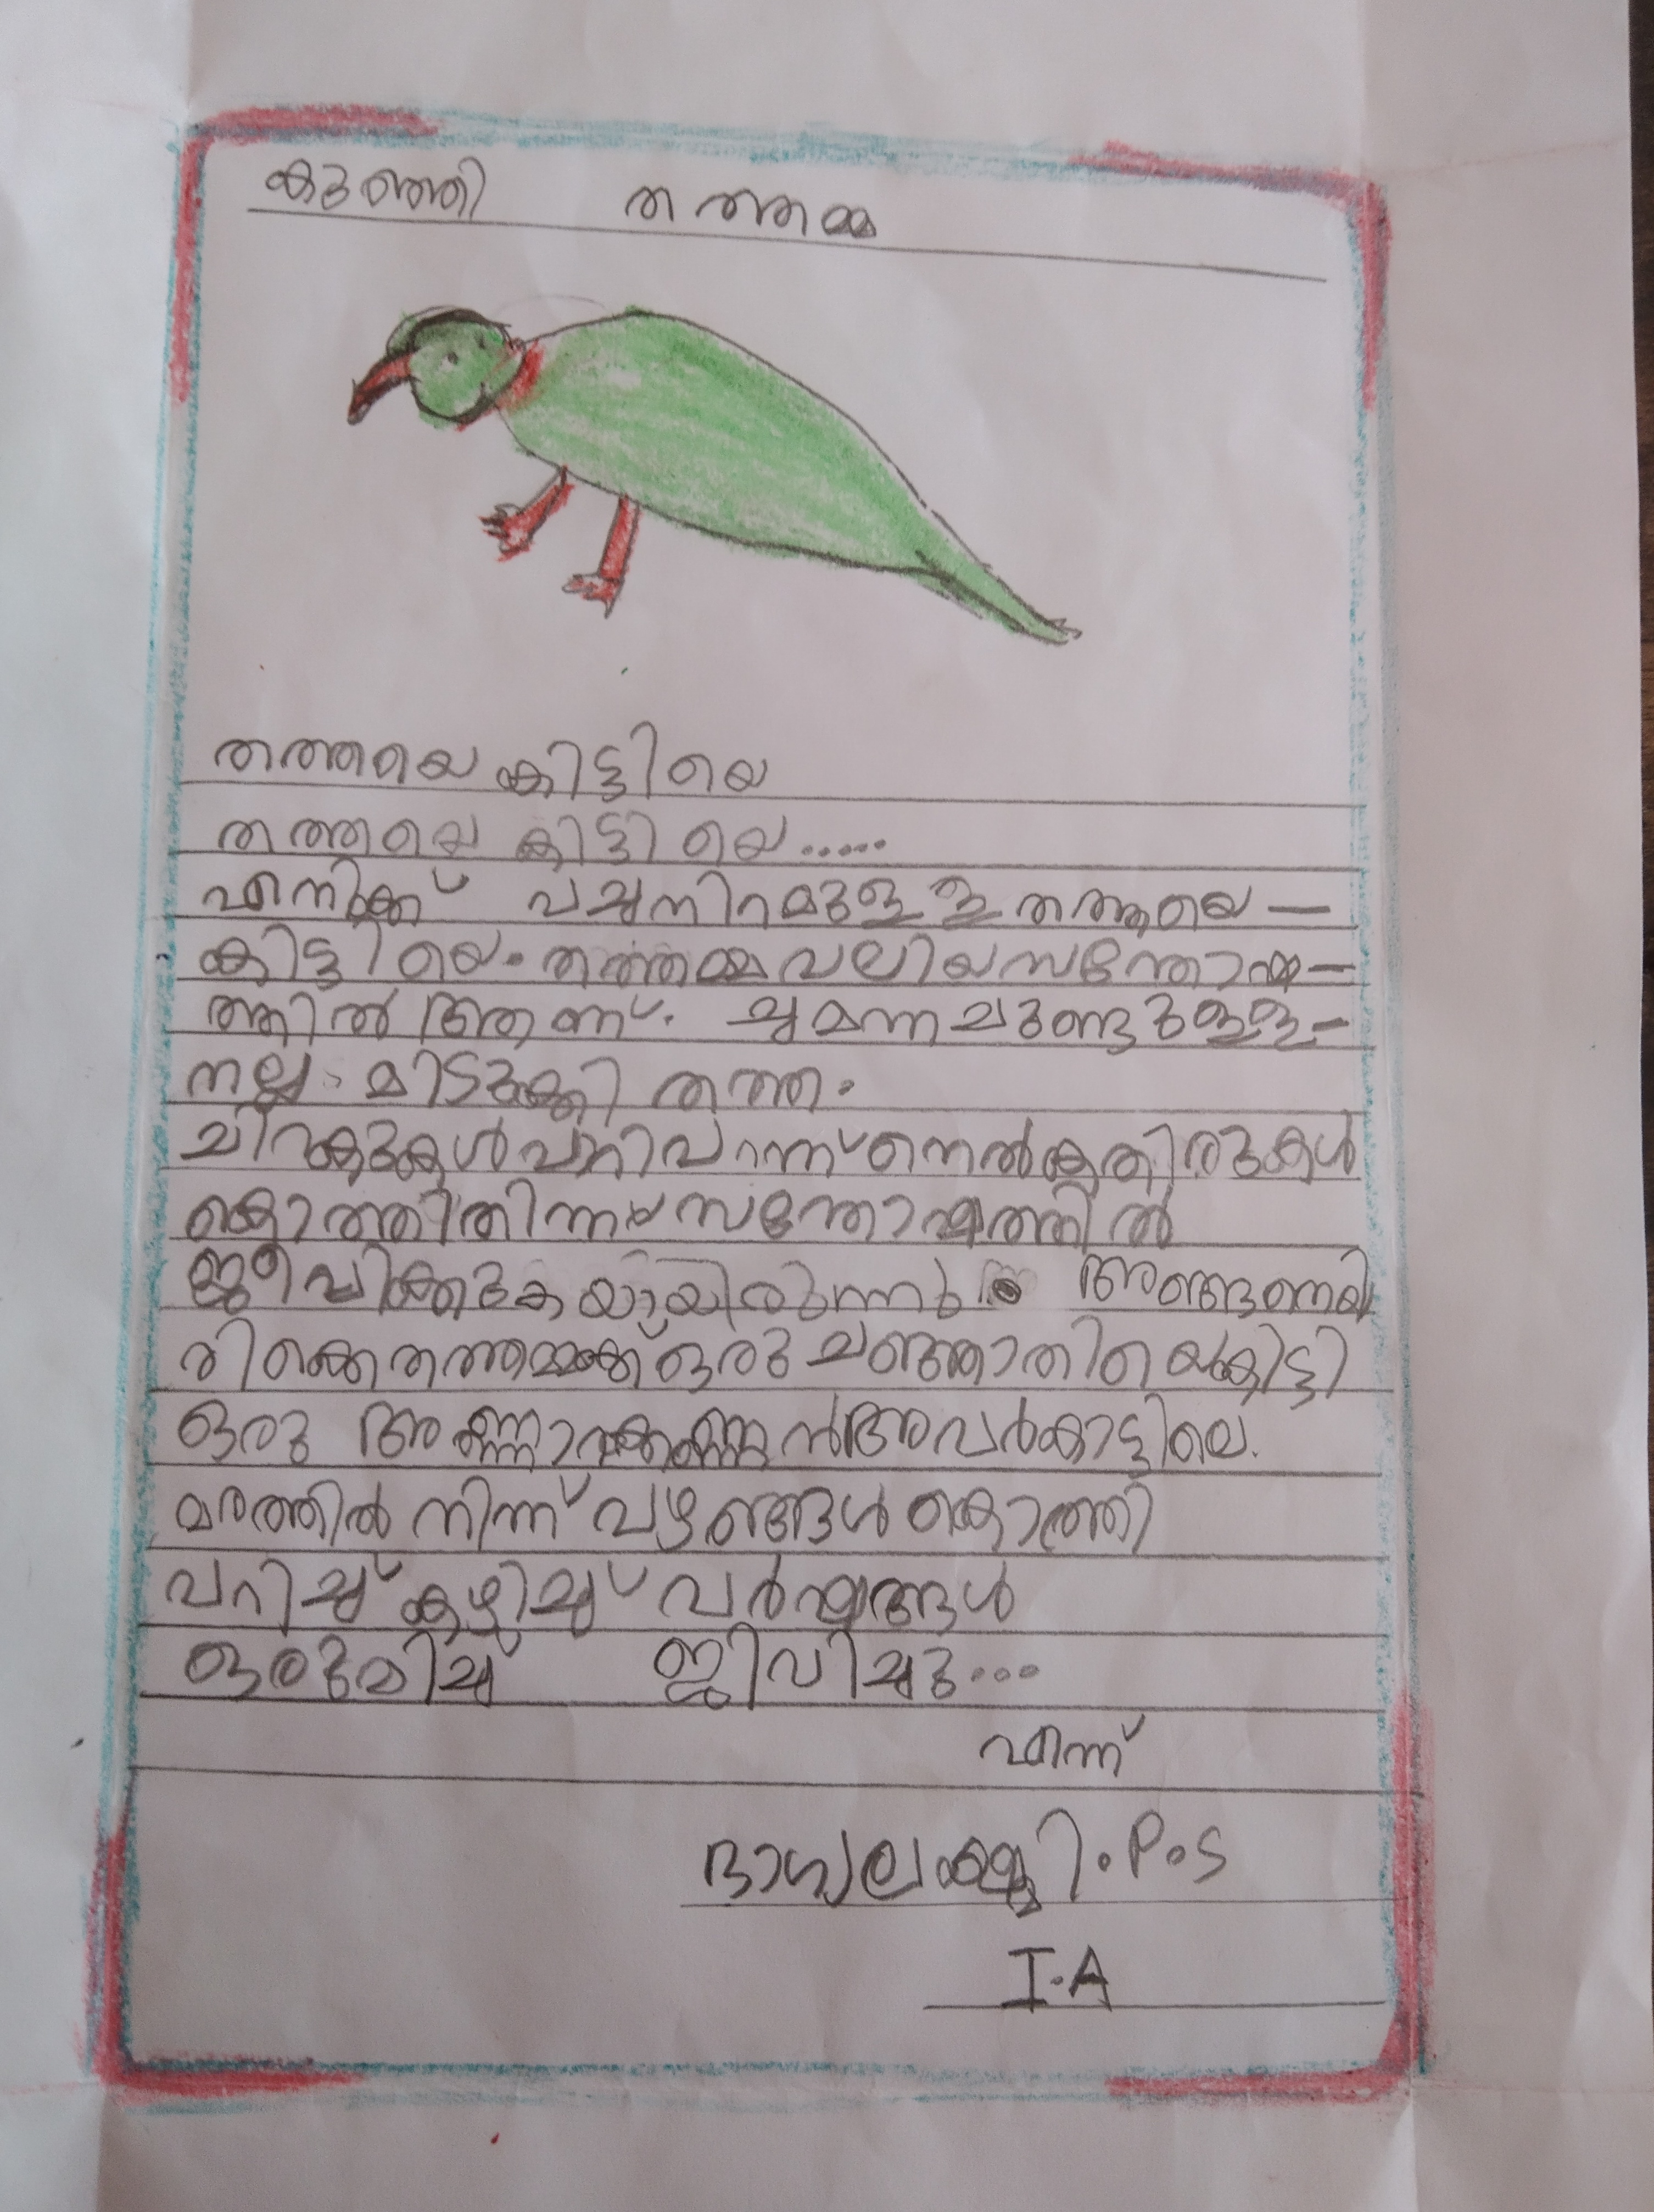 കുഞ്ഞി തത്തമ്മ
തത്തയെ കിട്ടിയെ
തത്തയെ കിട്ടിയെ.....
എനിക്ക് പച്ചനിറമുള്ള തത്തയെ –
കിട്ടിയെ. തത്തമ്മ വലിയ സന്തോഷ –
ത്തിൽ ആണ്. ചുമന്ന ചുണ്ടുള്ള –
നല്ല മിടുക്കി തത്ത.
ചിറകുകൾ വീശി പറന്ന് നെൽകതിരുകൾ
കൊത്തി തിന്ന് സന്തോഷത്തിൽ
ജീവിക്കുകേയായിരുന്നു അങ്ങനെയി
രിക്കെ തത്തമ്മക്ക് ഒരു ചങ്ങാതിയെകിട്ടി
ഒരു അണ്ണാറക്കണ്ണൻ അവർ കാട്ടിലെ.
മരത്തിൽ നിന്ന് പഴങ്ങൾ കൊത്തി
പറിച്ച് കഴിച്ച് വർഷങ്ങൾ
ഒരുമിച്ച് ജീവിച്ചു...
എന്ന്
ഭാഗ്യലക്ഷ്മി. P. S
I. A